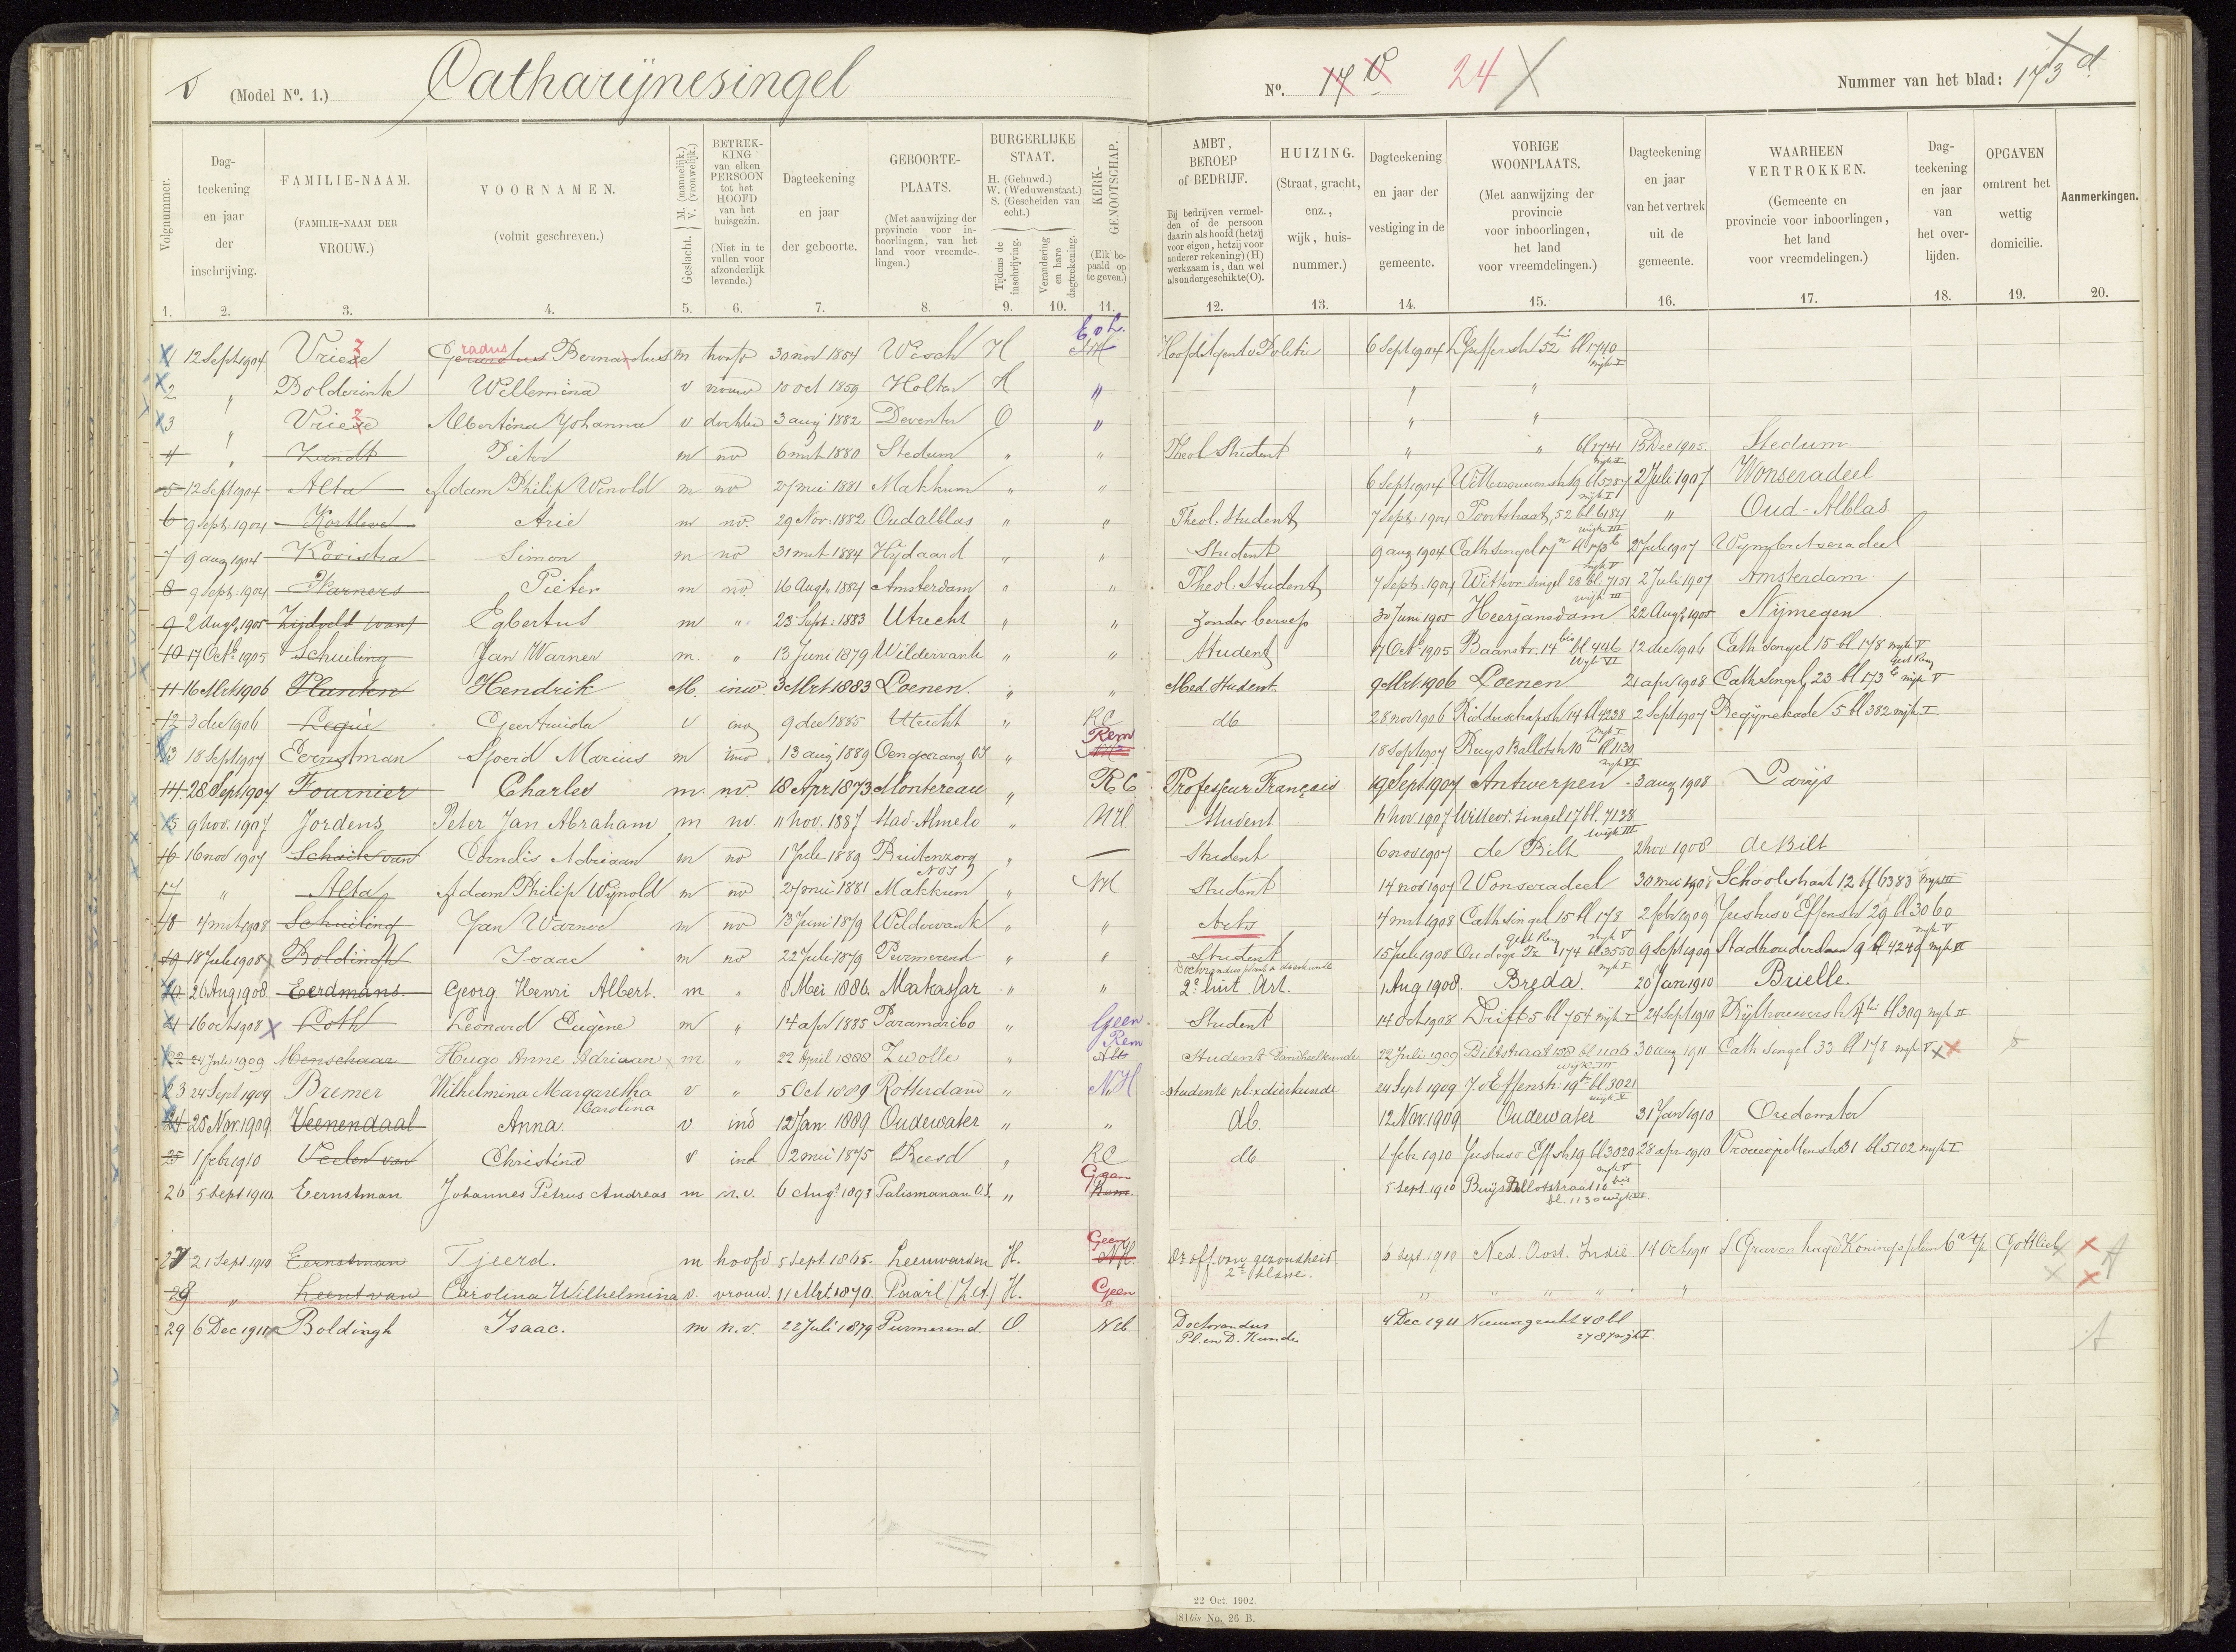 (Model Nº. 1.) Catharijnesingel Nº. 17 24 Nummer van het blad: 173 d
Volgnummer. Dag-teekening en jaar der inschrijving. FAMILIE-NAAM. (FAMILIE-NAAM DER VROUW.) VOORNAMEN. (voluit geschreven.) Geslacht. M. (mannelijk.) V. (vrouwelijk.) BETREK-KING van elken PERSOON tot het HOOFD van het huisgezin. (Niet in te vullen voor afzonderlijk levende.) Dagteekening en jaar der geboorte. GEBOORTE-PLAATS. (Met aanwijzing der provincie voor in-boorlingen, van het land voor vreemde-lingen.) BURGERLIJKE STAAT. H. (Gehuwd.) W. (Weduwenstaat.) S. (Gescheiden van echt.) Tijdens de inschrijving. Verandering en hare dagteekening. KERK-GENOOTSCHAP. (Elk be-paald op te geven.)
AMBT, BEROEP of BEDRIJF. Bij bedrijven vermel-den of de persoon daarin als hoofd (hetzij voor eigen, hetzij voor anderer rekening) (H) werkzaam is, dan wel als ondergeschikte (O). HUIZING. (Straat, gracht, enz., wijk, huis-nummer.) Dagteekening en jaar der vestiging in de gemeente. VORIGE WOONPLAATS. (Met aanwijzing der provincie voor inboorlingen, het land voor vreemdelingen.) Dagteekening en jaar van het vertrek uit de gemeente. WAARHEEN VERTROKKEN. (Gemeente en provincie voor inboorlingen, het land voor vreemdelingen.) Dag-teekening en jaar van het over-lijden. OPGAVEN omtrent het wettig domicilie. Aanmerkingen.
1. 2. 3. 4. 5. 6. 7. 8. 9. 10. 11. 12. 13. 14. 15. 16. 17. 18. 19. 20.
1 12 Sept 1904 Vrieze Gerardus Bernardus m hoofd 30 nov 1854 Wisch H Ev L. Hoofdagent v Politie 6 Sept 1904 52 bis bl 1740 wijk I
2 " Bolderink Willemina v vrouw 10 oct 1859 Holten H " " "
3 " Vrieze Albertina Johanna v dochter 3 aug 1882 Deventer O " " "
4 " Zandt Pieter m nv 6 mrt 1880 Stedum " " Theol Student " " bl 1741 wijk I 15 Dec 1905. Stedum
5 12 Sept 1904 Alta Adam Philip Wenold m nv 27 mei 1881 Makkum " " 6 Sept 1904 Wittevrouwenstr 19 bl 5287 wijk I 2 Juli 1907 Wonseradeel
6 9 Sept. 1904 Kortleve Arie m nv. 29 Nov. 1882 Oudalblas " " Theol. Student 7 Sept. 1904 Poortstraat, 52 bl. 6184 wijk III " Oud-Alblas
7 9 aug 1904 Kooistra Simon m nv 31 mrt 1884 Hijdaard " " Student 9 aug 1904 Cath Singel 17 bl 173 b wijk V 2 Juli 1907 Wymbritseradeel
8 9 Sept. 1904 Warners Pieter m nv. 16 Aug. 1884 Amsterdam " " Theol. Student 7 Sept. 1904 Witvr. Singel 28 bl. 7151 wijk III 2 Juli 1907 Amsterdam
9 2 Aug. 1905 Zijdveld (van) Egbertus m " 23 Sept. 1883 Utrecht " " Zonder beroep 30 Juni 1905 Heerjansdam 22 Aug. 1905 Nijmegen
10 17 Oct. 1905 Schuiling Jan Warner m. " 13 Juni 1879 Wildervank " " Student 7 Oct. 1905 Baanstr. 14 bis bl 446 Wijk VI 12 dec 1906 Cath Singel 15 bl 178 wijk V
11 16 Mrt 1906 Planten Hendrik M. inw. 3 Mrt 1883 Loenen. " " Med. Student. 9 Mrt. 1906 Loenen 21 apr 1908 Cath Singel, 23 bl 173 wijk V
12 3 dec 1906 Lequie Geertruida v inw 9 dec 1885 Utrecht " RC db 28 nov 1906 Ridderschapstr 14 bl 4238 wijk I 2 Sept 1907 Begijnekade 5 bl 382 wijk I
13 18 Sept 1907 Eernstman Sjoerd Marius m inw 13 aug 1889 Oengarang OI " Rem 18 Sept 1907 Buys Ballotstr 10 bis bl 1130 wijk VI
14. 28 Sept 1907 Fournier Charles m. nv. 18 Apr. 1873. Montereau " RC Professeur Français 19 Sept. 1907 Antwerpen 3 aug 1908 Parijs
15 9 nov. 1907 Jordens Peter Jan Abraham m nv. 11 nov. 1887 Stad-Almelo " NH Student nov. 1907 Wittevr. singel 17 bl. 7138 wijk III
16 16 nov 1907 Schaik van Adriaan m nv 1 Juli 1889 Buitenzorg NOI " — Student 6 nov 1907 de Bilt 2 nov 1908 de Bilt
17 " Alta Adam Philip Wijnold m nv 27 mei 1881 Makkum " NH Student 14 nov 1907 Wonseradeel 30 mei 1908 Schoolstraat 12 bl 6383 wijk III
18 4 mrt 1908 Schuiling Jan Warner m nv 13 Juni 1879 Wildervank " " Arts 4 mrt 1908 Cath Singel 15 bl 178 wijk V 2 febr 1909 Justus v Effenstr 29 bl 3060 wijk V
19 18 Juli 1908 Boldingh Isaac m nv 22 Juli 1879 Purmerend " " Student Doctorandus plant & dierkunde 15 Juli 1908 Oudegr Tz 174 bl 3550 wijk I 9 Sept 1909 Stadhouderslaan 9 bl 4249 wijk VI
20 26 Aug 1908. Eerdmans. Georg Henri Albert. m " 8 Mei 1886. Makassar " " 2e luit. Art. 1 Aug 1908. Breda. 20 Jan 1910 Brielle.
21 16 oct 1908 Roth Leonard Eugène m " 14 apr 1885 Paramaribo " Geen Student 14 Oct 1908 Drift 5 bl 754 wijk I 24 Sept 1910 bl 309 wijk II
22 24 Juli 1909 Menschaar Hugo Anne Adriaan m " 22 April 1888 Zwolle " Rem Student Landbouwkunde 22 Juli 1909 Biltstraat 158 bl 1106 wijk III 30 aug 1911 Cath Singel 33 bl 178 wijk V
23 24 Sept 1909 Bremer Wilhelmina Margaretha Carolina v " 5 Oct 1889 Rotterdam " NH studente pl. & dierkunde 24 Sept 1909 J. v Effenstr. 19 bis bl 3021 wijk V
24 25 Nov. 1909. Veenendaal Anna v ind 12 Jan 1889 Oudewater " " db. 12 Nov. 1909 Oudewater 31 Jan 1910 Oudewater
25 1 feb 1910 Veelen van Christina v ind 2 mei 1875 Beesd " RC db 1 febr 1910 Justus v Effstr 19 bl 3020 wijk V 28 apr 1910 31 bl 5102 wijk I
26 5 Sept 1910. Eernstman Johannes Petrus Andreas m n.v. 6 Aug. 1893 Palismanan O.I. " Geen Rem. 5 Sept. 1910 Buijs Ballotstraat 10 bis bl. 1130 wijk VI
27 21 Sept. 1910 Eernstman Tjeerd. m hoofd 5 Sept. 1865. Leeuwarden H. Geen NH. Dr off. van gezondheid 2e klasse. 6 Sept. 1910 Ned. Oost. Indië 14 Oct 1911 's Gravenhage Koningsplein 6a a/p Gottlieb
28 " Leent van Carolina Wilhelmina v. vrouw. 11 Mrt. 1870. Paarl (Z.A.) H. Geen " " " " " "
29 6 Dec 1911 Boldingh Isaac. m n.v. 22 Juli 1879 Purmerend. O NH Doctorandus Pl. en D. Kunde 4 Dec 1911 Nieuwegracht 40 bl 2787 wijk I.
22 Oct 1902.
81bis No. 26 B.